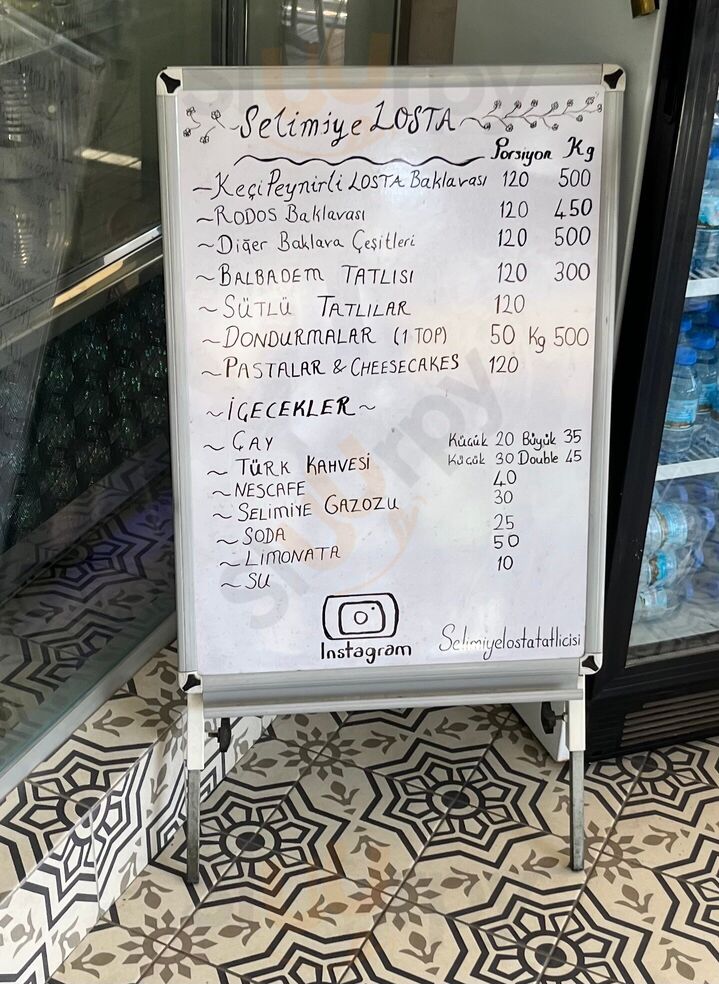 ~Selimiye LOSTA~
Porsiyon Kg
~KeçiPeynirli LOSTA Baklavası 120 500
~RODOS Baklavası 120 450
~Diğer Baklava Çeşitleri 120 500
~BALBADEM TATLISI 120 300
~SÜTLÜ TATLILAR 120
~DONDURMALAR (1 TOP) 50 Kg 500
~PASTALAR & CHEESECAKES 120
~İÇECEKLER~
~ÇAY Küçük 20 Büyük 35
~TÜRK KAHVESİ Küçük 30 Double 45
~NESCAFE 40
~SELİMİYE GAZOZU 30
~SODA 25
~LİMONATA 50
~SU 10
Instagram Selimiyelostatatlicisi
Sluurpy